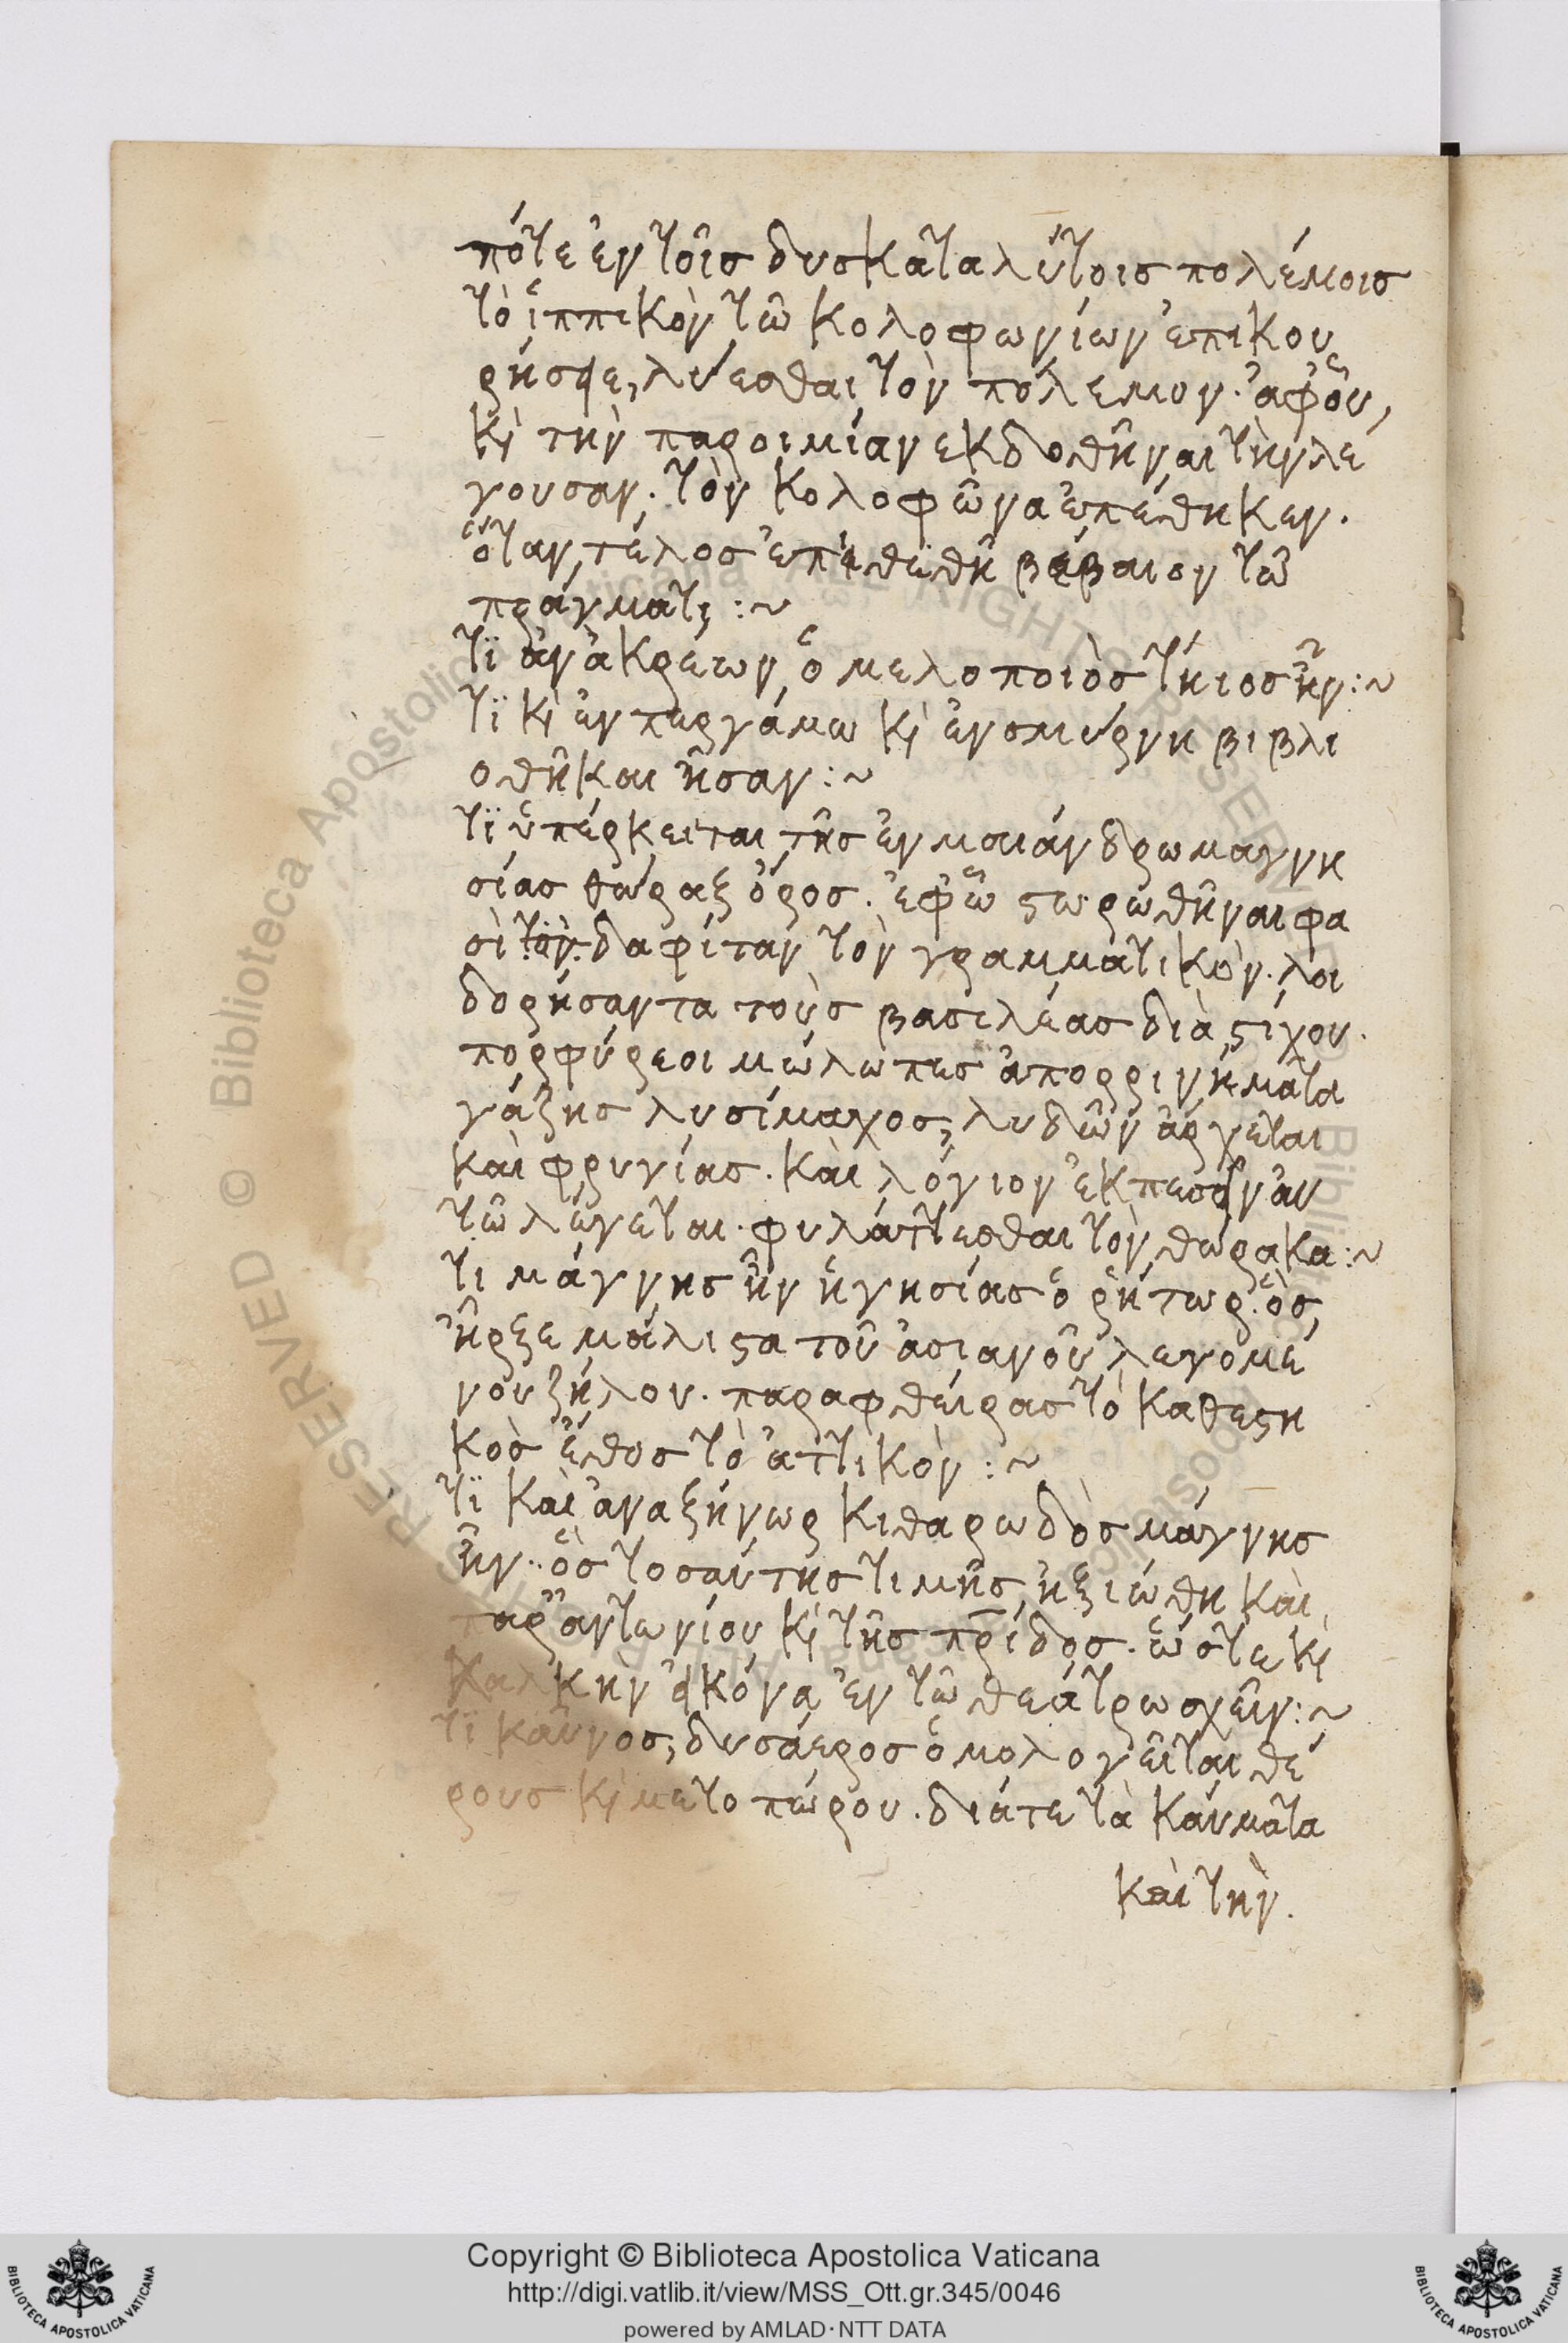 πότε ἐν τοῖς δυσκαταλύτοις πολέμοις
τὸ ἱππικὸν τῶ κολοφωνίων ἐπικου
ρήσειε, λύεσθαι τὸν πόλεμον. ἀφοὗ,
κὶ τὴν παροιμίαν ἐκδοθῆναι τὴν λέ
γουσαν. τὸν κολοφῶνα ἐπέθηκεν.
ὅταν τέλος ἐπιτεθῆ βέβαιον τῶ
πράγματι :~
Τϊ ἀνακρέων ὁ μελοποιὸς τήιος ἦν :~
Τϊ κὶ ἐν περγάμω κὶ ἐν σμύρνη βιβλι
οθῆκαι ἦσαν :~
Τϊ ὑπέρκειται τῆς ἐν μαιάνδρω μαγνη
σίας θώραξ ὄρος. ἐφῶ ϛωρωθῆναι φα
σὶ τὸν δαφίταν τὸν γραμματικὸν. λοι
δορήσαντα τοὺς βασιλέας διὰ ϛίχου.
πορφύρεοι μώλωπες ἀπορρινήματα
γάζης λυσίμαχος, λυδῶν ἄρχεται
καὶ φρυγίας. καὶ λόγιον ἐκπεσεῖν αυ
τῶ λέγεται. φυλάττεσθαι τὸν θώρακα :~
Τι μάγνης ἦν ἡγησίας ὁ ῥήτωρ. ὃς,
ἦρξε μάλιϛα τοῦ ἀσιανοῦ λεγομέ
νου ζήλου. παραφθείρας τὸ καθεϛη
κὸς ἔθος τὸ ἀττικὸν :~
Τϊ καὶ ἀναξήνωρ κιθαρωδὸς μάγνης
ἦν. ὃς τοσαύτης τιμῆς ἠξιώθη καὶ
παρ᾽ ἀντωνίου κὶ τῆς πρίδος. ὥστε κὶ
χαλκὴν εἰκόνα ἐν τῶ θεάτρω σχεῖν :~
Τϊ καῦνος, δυσάερος ὁμολογεῖται θέ
ρους κὶ μετοπώρου. διάτε τὰ καύματα
καὶ τὴν.
Copyright © Biblioteca Apostolica Vaticana
http://digi.vatlib.it/view/MSS_Ott.gr.345/0046
powered by AMLAD·NTT DATA